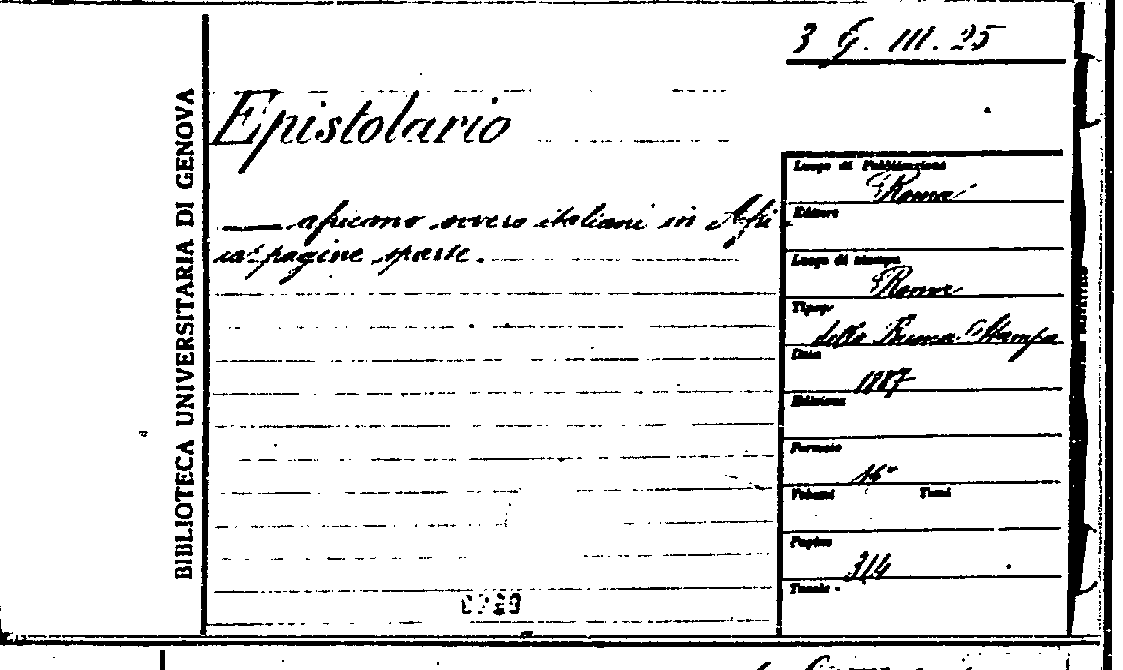 3 G. III. 25
BIBLIOTECA UNIVERSITARIA DI GENOVA
Epistolario
— africano ovvero italiani in Afri-
ca: pagine sparse.
Luogo di Pubblicazione
Roma
Editore
Luogo di stampa
Roma
Tipogr.
della Buona Stampa
Data
1887
Edizione
Formato
16°
Volumi Tomi
Pagine
314
Tavole